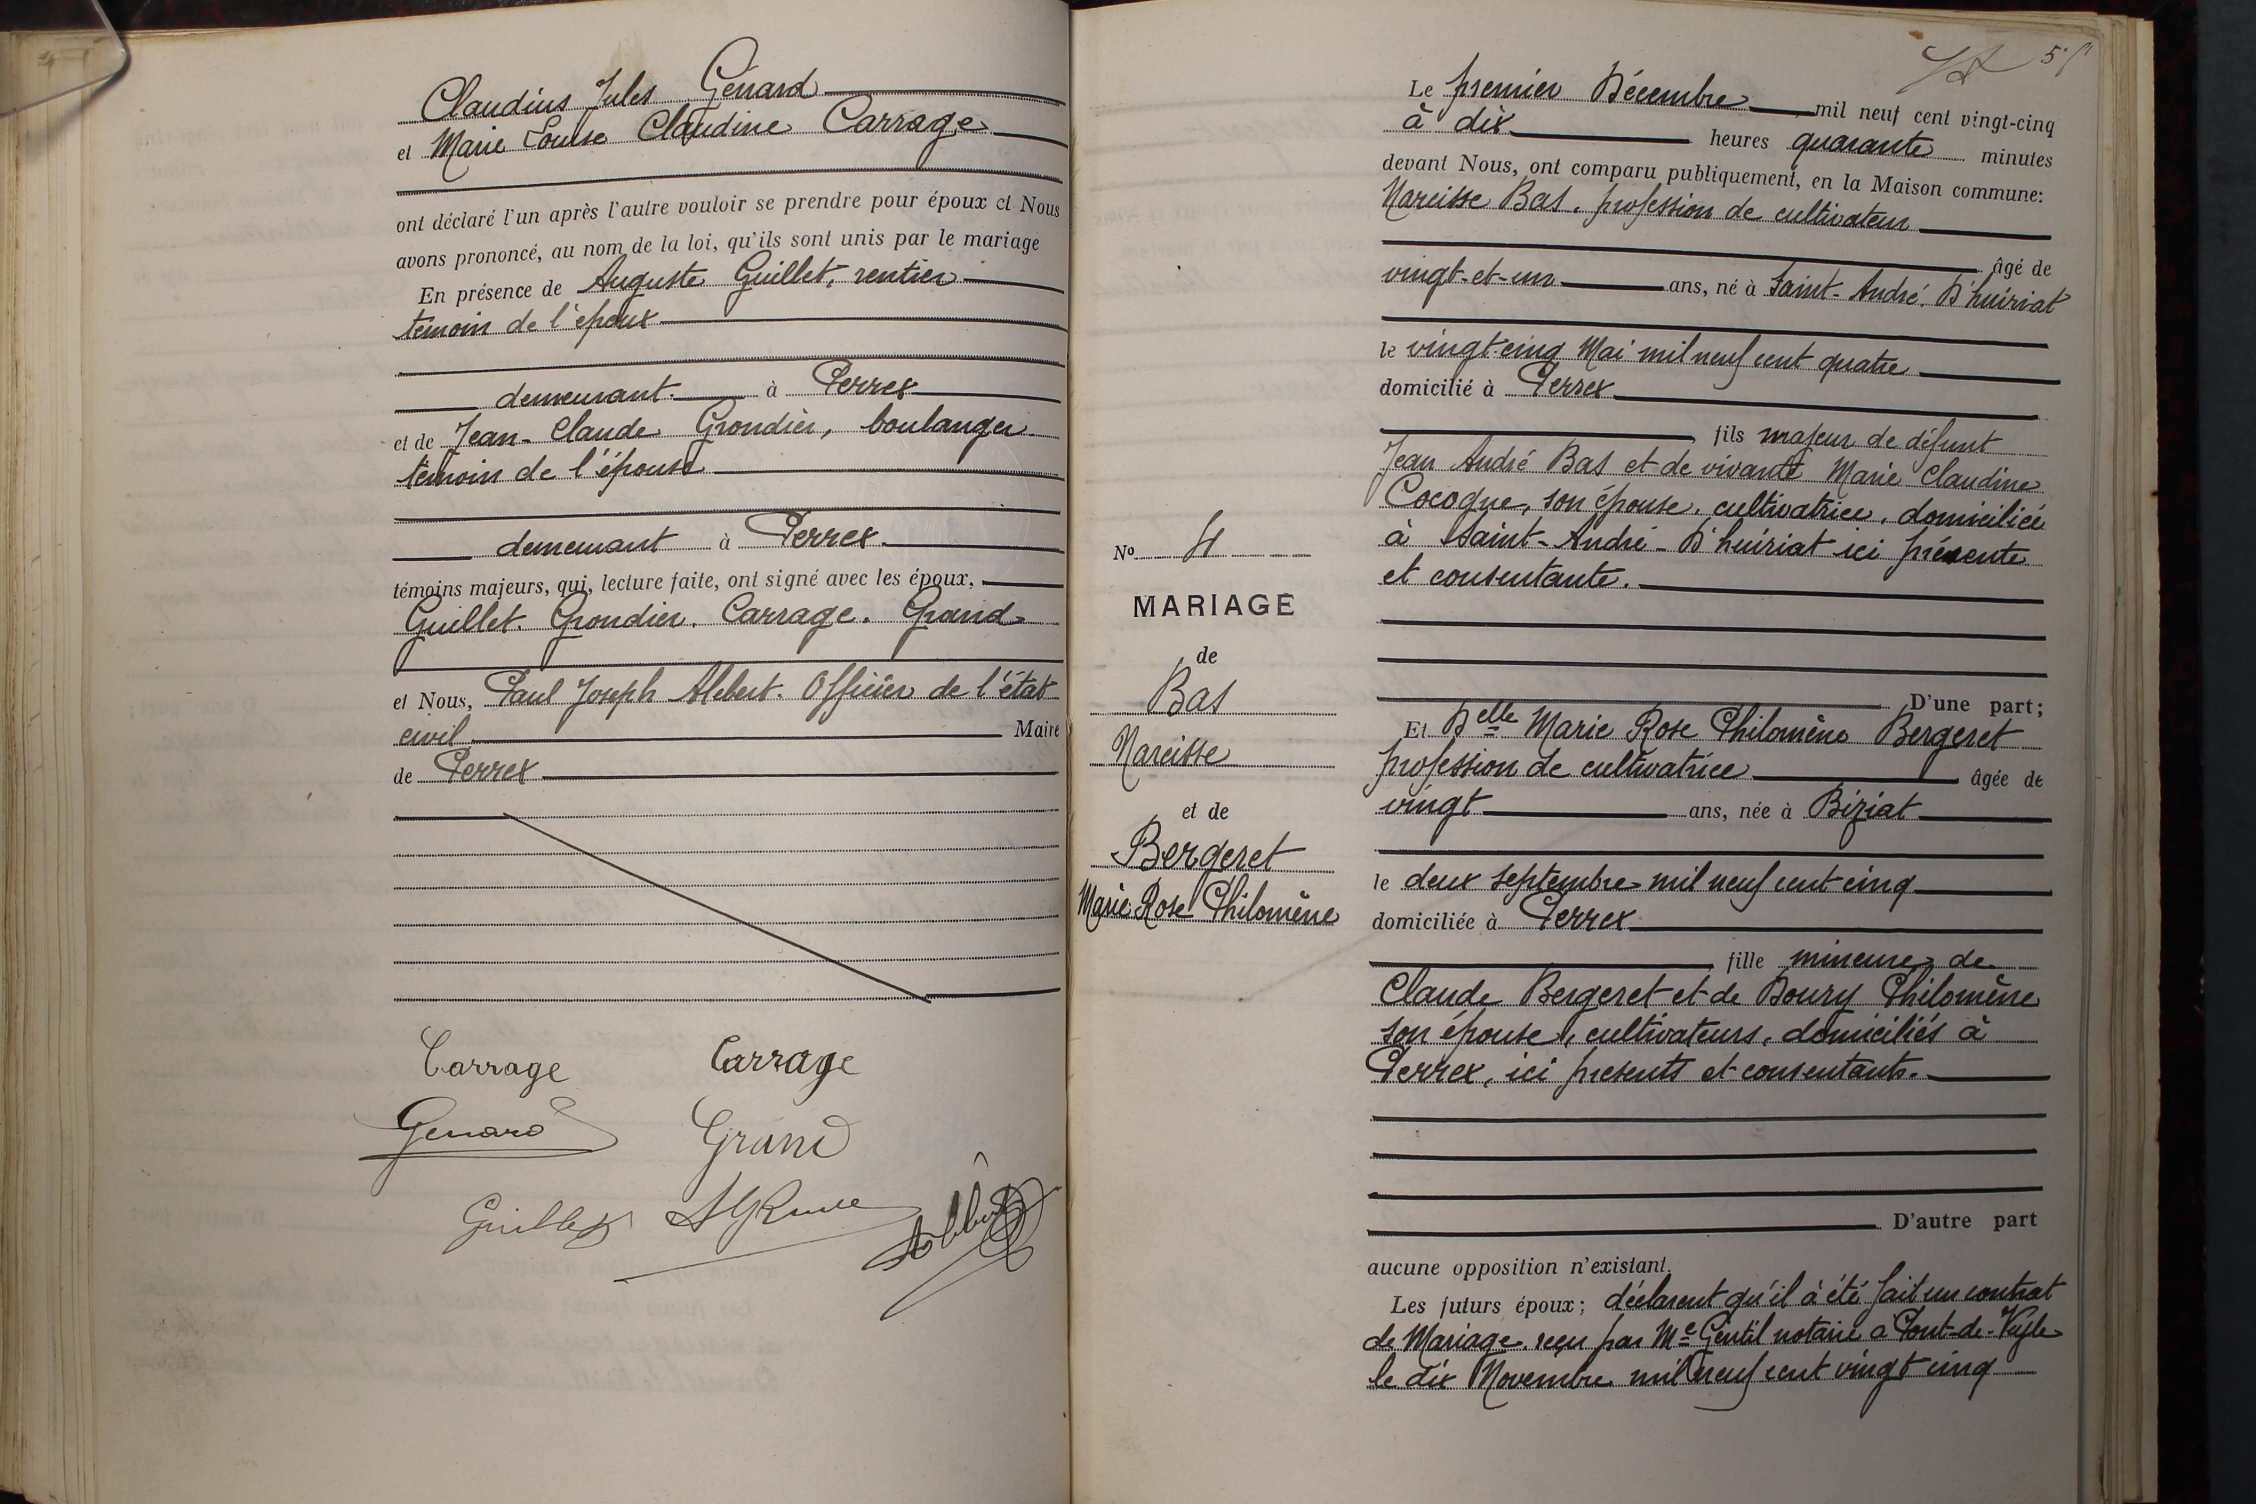 Claudius Jules Génard
et Marie Louise Claudine Carrage
ont déclaré l'un après l'autre vouloir se prendre pour époux et Nous
avons prononcé, au nom de la loi, qu'ils sont unis par le mariage
En présence de Auguste Guillet, rentier
témoin de l'époux
demeurant à Perrex
et de Jean-Claude Grondier, boulanger
témoin de l'épouse
demeurant à Perrex
témoins majeurs, qui, lecture faite, ont signé avec les époux,
Guillet. Grondier. Carrage. Grand
et Nous, Paul Joseph Alebert. Officier de l'état
civil Maire
de Perrex
Carrage Carrage
Genard Grand
Guillet
5
Le premier Décembre mil neuf cent vingt-cinq
à dix heures quarante minutes
devant Nous, ont comparu publiquement, en la Maison commune:
Narcisse Bas, profession de cultivateur
âgé de
vingt-et-un ans, né à Saint-André-D'huiriat
le vingt-cinq Mai mil neuf cent quatre
domicilié à Perrex
fils majeur de défunt
Jean André Bas et de vivante Marie Claudine
Cocogne, son épouse, cultivatrice, domiciliée
à Saint-André-D'huiriat ici présente
et consentante.
D'une part;
No 4
MARIAGE
de
Bas
Narcisse
et de
Bergeret
Marie Rose Philomène
Et Delle Marie Rose Philomène Bergeret
profession de cultivatrice âgée de
vingt ans, née à Biziat
le deux septembre mil neuf cent cinq
domiciliée à Perrex
fille mineure de
Claude Bergeret et de Boury Philomène
son épouse, cultivateurs, domiciliés à
Perrex, ici présents et consentants.
D'autre part
aucune opposition n'existant.
Les futurs époux; déclarent qu'il à été fait un contrat
de Mariage reçu par Me Gentil notaire a Pont-de-Veyle
le dix Novembre mil neuf cent vingt cinq